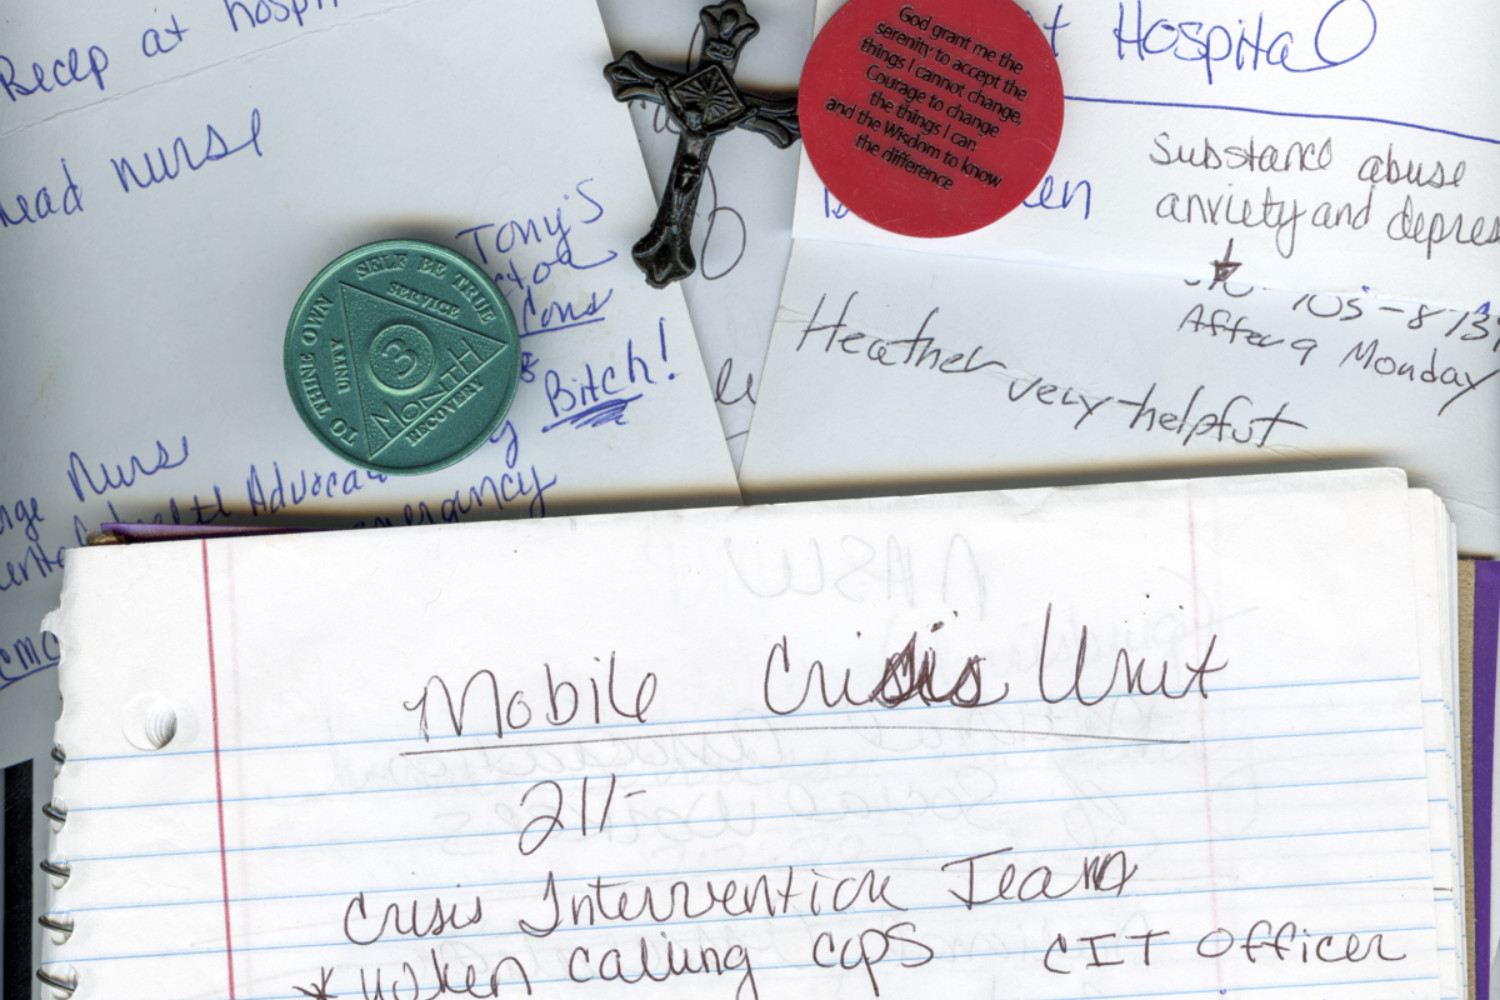 Recep at hosp
head nurse
Tony's
Cons
Bitch!
Nurse
Advoca
emergency
CMC
TO THINE OWN SELF BE TRUE
SERVICE
UNITY
RECOVERY
3
MONTH
God grant me the
serenity to accept the
things I cannot change,
Courage to change
the things I can
and the Wisdom to know
the difference
t Hospital
en
Substance abuse
anxiety and depres
105-813
After 9 Monday
Heather very helpful
NASW
Mobile Crisis Unit
211-
Crisis Intervention Team
* When calling cops CIT Officer